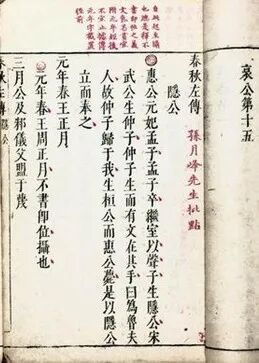 哀公第十五
春秋左傳 孫月峰先生批點
隱公
惠公元妃孟子孟子卒繼室以聲子生隱公宋
武公生仲子仲子生而有文在其手曰為魯夫
人故仲子歸于我生桓公而惠公薨是以隱公
立而奉之
元年春王正月
元年春王周正月不書即位攝也
三月公及邾儀父盟于蔑
春秋左傳 隱公
也總是釋不
書即位之義
元年字截置
經前